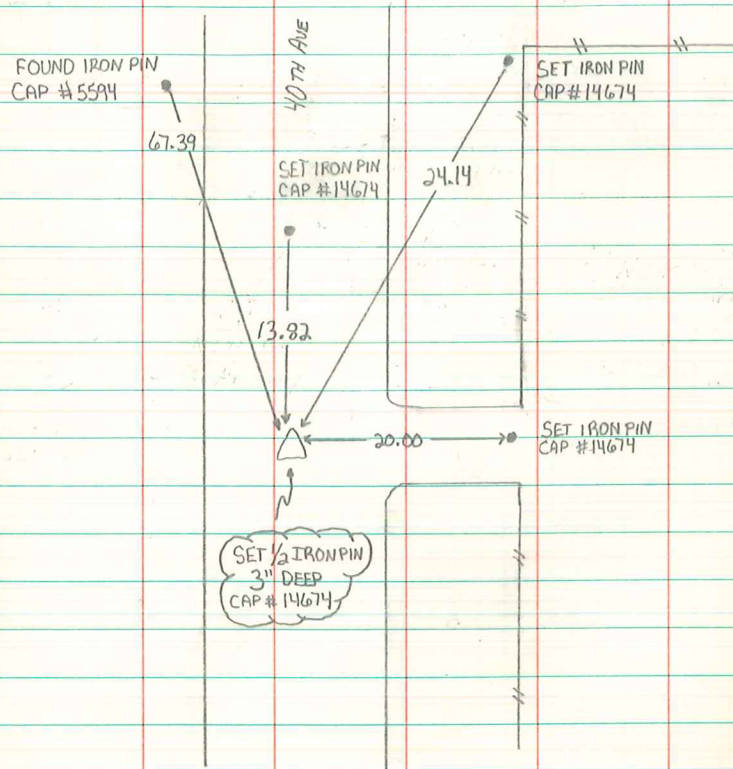 40TH AVE
FOUND IRON PIN
CAP #5594
SET IRON PIN
CAP #14674
67.39
SET IRON PIN
CAP #14674
24.14
13.82
20.00
SET IRON PIN
CAP #14674
SET 1/2 IRON PIN
3" DEEP
CAP #14674